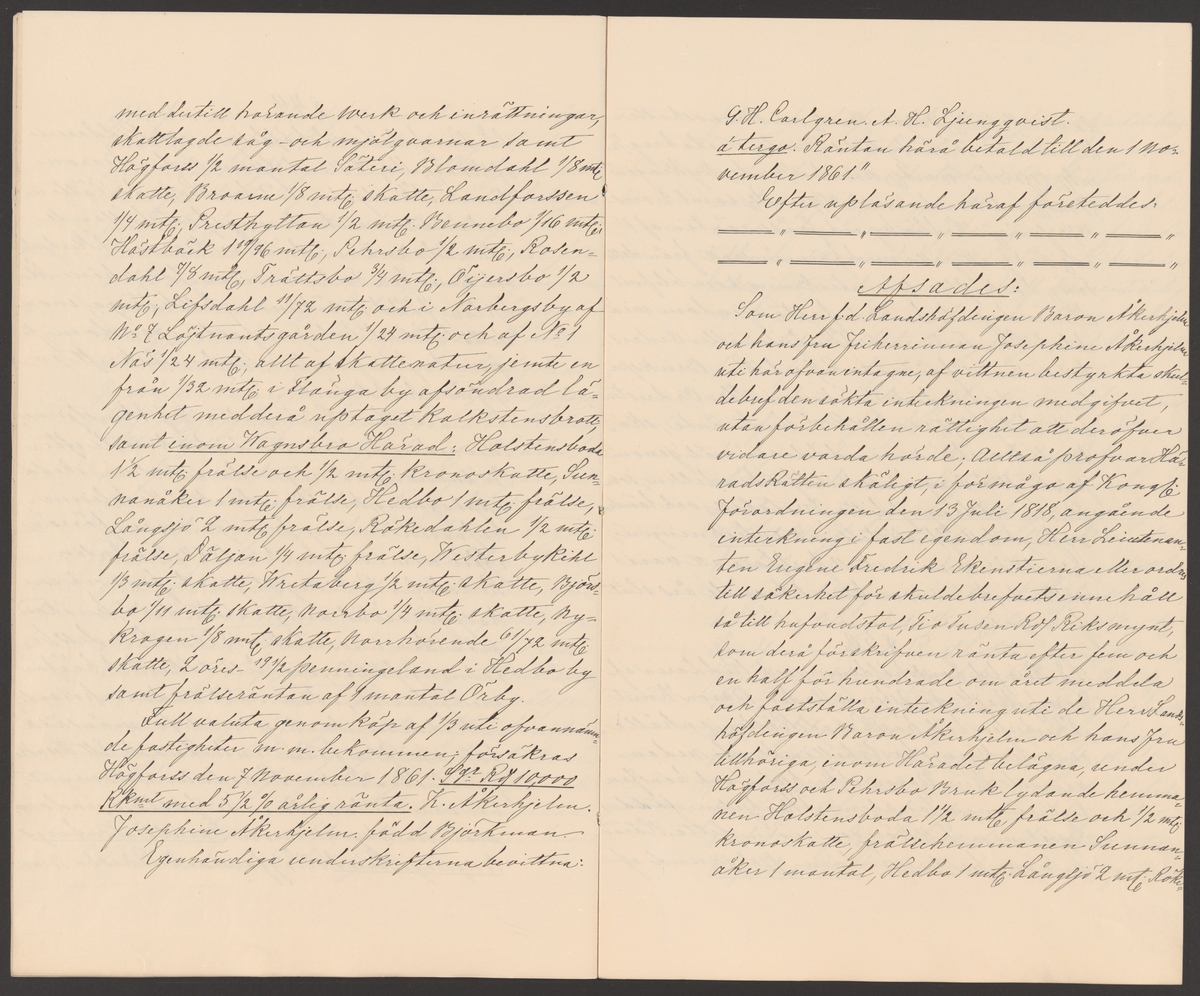 med dertill hörande werk och inrättningar,
skattlagde såg- och mjölqvarnar samt
Högforss 1/2 mantal Säteri, Blomdahl 1/8 mtl;
skatte, Broarne 1/8 mtl; skatte, Landforssen
1/4 mtl; Presthyttan 1/2 mtl. Bennebo 5/16 mtl;
Hästbäck 1 19/96 mtl; Pehrsbo 1/2 mtl; Rosen-
dahl 7/8 mtl, Trättsbo 3/4 mtl; Öijersbo 1/2
mtl; Lifsdahl 11/72 mtl och i Norbergsby af
No 7 Löjtnantsgården 1/24 mtl; och af No 1
Näs 1/24 mtl; allt af skattenatur, jemte en
från 1/32 mtl; i Klånga by afsöndrad lä-
genhet med derå uptaget Kalkstensbrott,
samt inom Wagnsbro Härad: Holstensboda
1 1/2 mtl; frälse och 1/2 mtl; kronoskatte, Sun-
nanåker 1 mtl; frälse, Hedbo 1 mtl; frälse,
Långsjö 2 mtl; frälse, Rökedahlen 1/2 mtl;
frälse, Däljan 1/4 mtl; frälse, Westerbykihl
1/3 mtl; skatte, Wretaberg 1/2 mtl; skatte, Björs-
bo 1/11 mtl; skatte, Norrbo 1/4 mtl; skatte, Ny-
krogen 1/8 mtl; skatte, Norrhörende 61/72 mtl;
skatte, 2 öres 19 1/2 penningeland i Hedbo by
samt frälseräntan af 1 mantal Örby.
Full valuta genom köp af 1/3 uti ofvannämn-
de fastigheter m. m. bekommen; försäkras
Högforss den 7 November 1861. Sga Rdr 10,000
Rkmt med 5 1/2 % årlig ränta. K. Åkerhjelm.
Josephine Åkerhjelm. född Björkman.
Egenhändiga underskrifterna bevittna:
G. H. Carlgren. A. H. Ljungqvist.
á tergo. Räntan härå betald till den 1 No-
vember 1861."
Efter upläsande häraf företeddes:
Afsades:
Som Herr f.d. Landshöfdingen Baron Åkerhjelm
och hans fru Friherrinnan Josephine Åkerhjelm
uti här ofvan intagne, af vittnen bestyrkta skul-
debref den sökta inteckningen medgifvet,
utan förbehållen rättighet att deröfver
vidare varda hörde; Alltså pröfvar Hä-
radsRätten skäligt, i förmågo af Kongl;
Förordningen den 13 Juli 1818, angående
inteckning i fast egendom, Herr Lieutenan-
ten Eugene Fredrik Ekenstierna eller ordres
till säkerhet för skuldebrefvets innehåll
så till hufvudstol, Tio Tusen Rdr Riksmynt,
som derå förskrifven ränta efter fem och
en half för hundrade om året meddela
och fastställa inteckning uti de Herr Lands-
höfdingen Baron Åkerhjelm och hans Fru
tillhöriga, inom Häradet belägna, under
Högforss och Pehrsbo Bruk lydande hemma-
nen Holstensboda 1 1/2 mtl; frälse och 1/2 mtl;
kronoskatte, frälsehemmanen Sunnan-
åker 1 mantal, Hedbo 1 mtl; Långsjö 2 mtl; Röke-